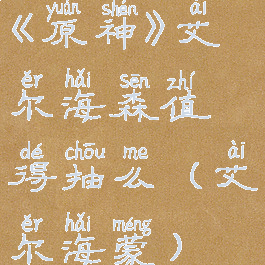 yuán shén ài
《原神》艾
ěr hǎi sēn zhí
尔海森值
dé chōu me ài
得抽么（艾
ěr hǎi méng
尔海蒙）